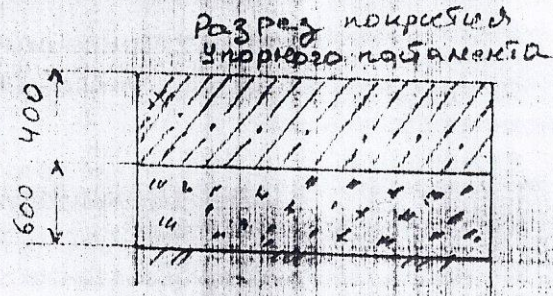 Разрез покрытия
Упорного постамента
400
600